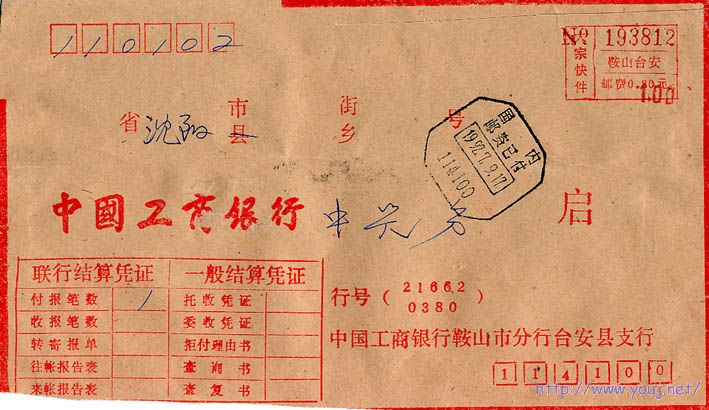 110102
№ 193812
宗快件
鞍山台安
邮费0.80元
1.00
省 沈阳 市县 街乡 号
国内
邮资已付
1992.7.9.17
114100
中國工商銀行 中兴 启
联行结算凭证 一般结算凭证
付报笔数 1 托收凭证
收报笔数 委收凭证
转寄报单 拒付理由书
往帐报告表 查询书
来帐报告表 查复书
行号(21662
0380)
中国工商银行鞍山市分行台安县支行
114100
http://www.youj.net/